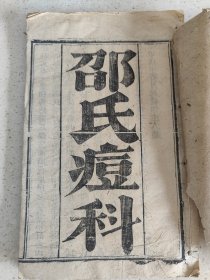 邵氏痘科